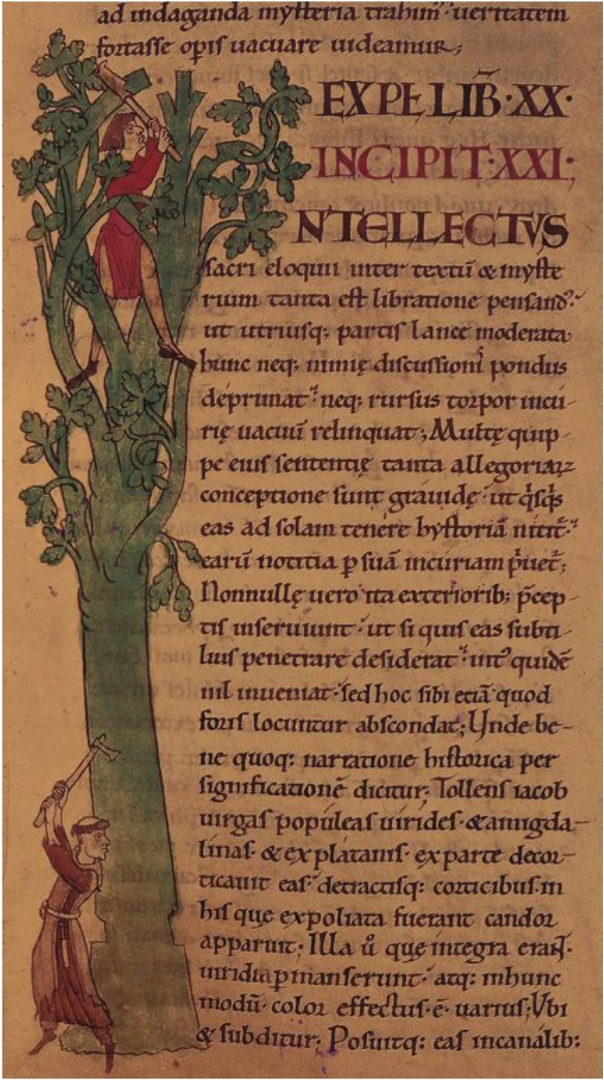 ad indaganda mysteria trahim᷒· ueritatem
fortasse opis uacuare uideamur;
EXPƚ LIB̄·XX·
INCIPIT·XXI·
NTELLECTVS
sacri eloquii inter textū & myste
rium tanta est libratione pensand᷒·
ut utriusq; partis lance moderata·
hunc neq; nimię discussionis pondus
deprimat· neq; rursus torpor incu-
rię uacuū relinquat; Multę quip-
pe eius sententię tanta allegoriaꝝ
conceptione sunt grauidę· ut qͥsqͥs
eas ad solam tenere hystoriā nitit᷒·
earū notitia ꝑ suā incuriam pͥuet᷒;
Nonnullę uero ita exteriorib; p̄cep-
tis inseruiunt· ut si quis eas subti-
lius penetrare desiderat· int᷒ quidē
nil inueniat· sed hoc sibi etiā quod
foris locuntur abscondat; Unde be-
ne quoq; narratione historica per
significationē dicitur; Tollens iacob
uirgas populeas uirides· & amigda-
linas· & ex platanis· ex parte decor-
ticauit eas· detractisq; corticibus in
his quę expoliata fuerant candor
apparuit; Illa ů quę integra eraɴt·
uiridia ꝑmanserunt· atq; inhunc
modū· color effectus·ē· uarius; Vbi
& subditur; Posuitq; eas incanalib;